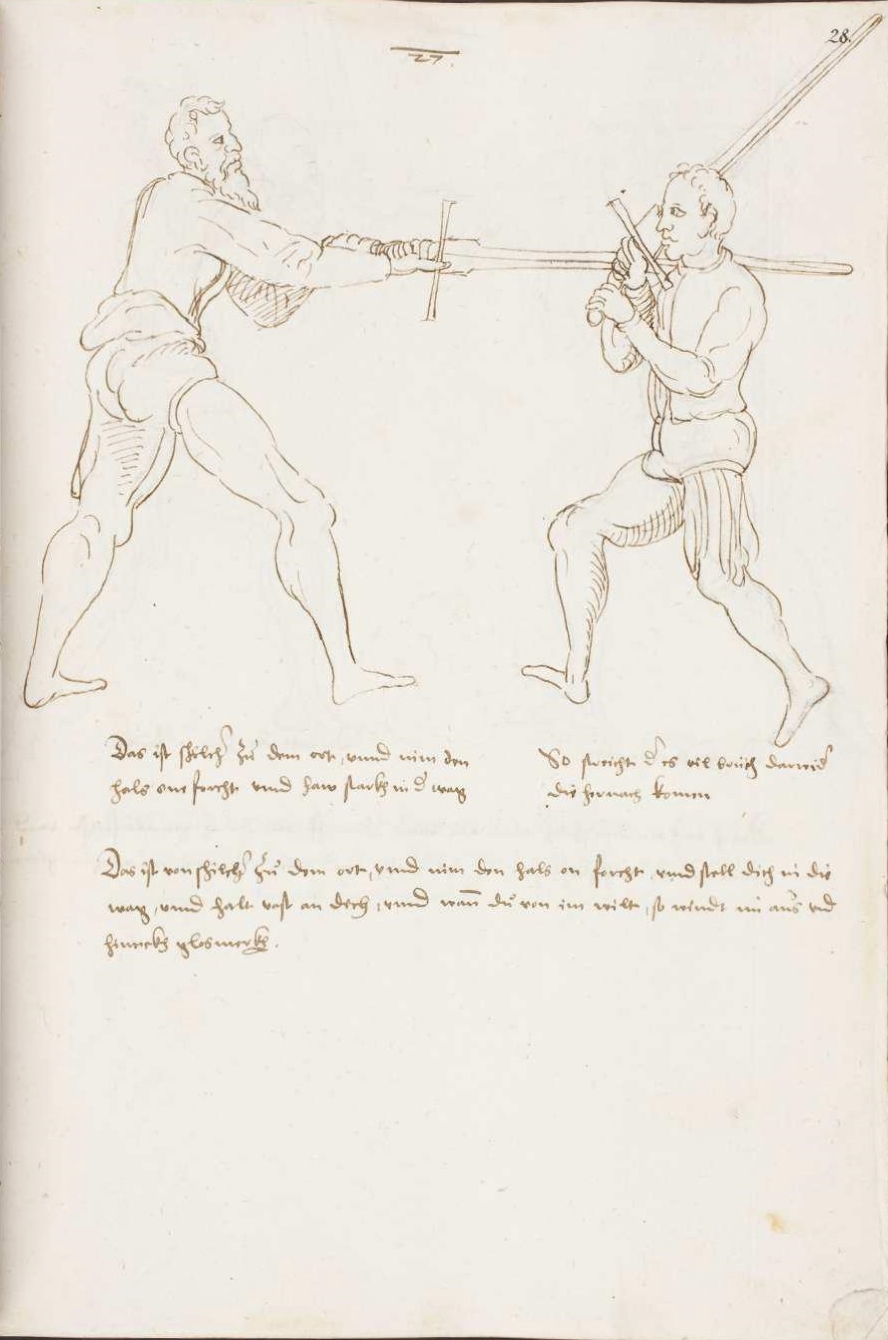 28.
27.
Das ist schilch zu dem ort, vnnd nim den
hals one forcht vnnd haw starkh in d' wag
So spricht d' es vil bruch darwid'
die hernach komen
Das ist von schilch zu dem ort, vnnd nim den hals on forcht, vnnd stell dich in die
wag, vnnd halt vast an dich, vnnd wann du von im wilt, so windt in aus vnd
hinwekh